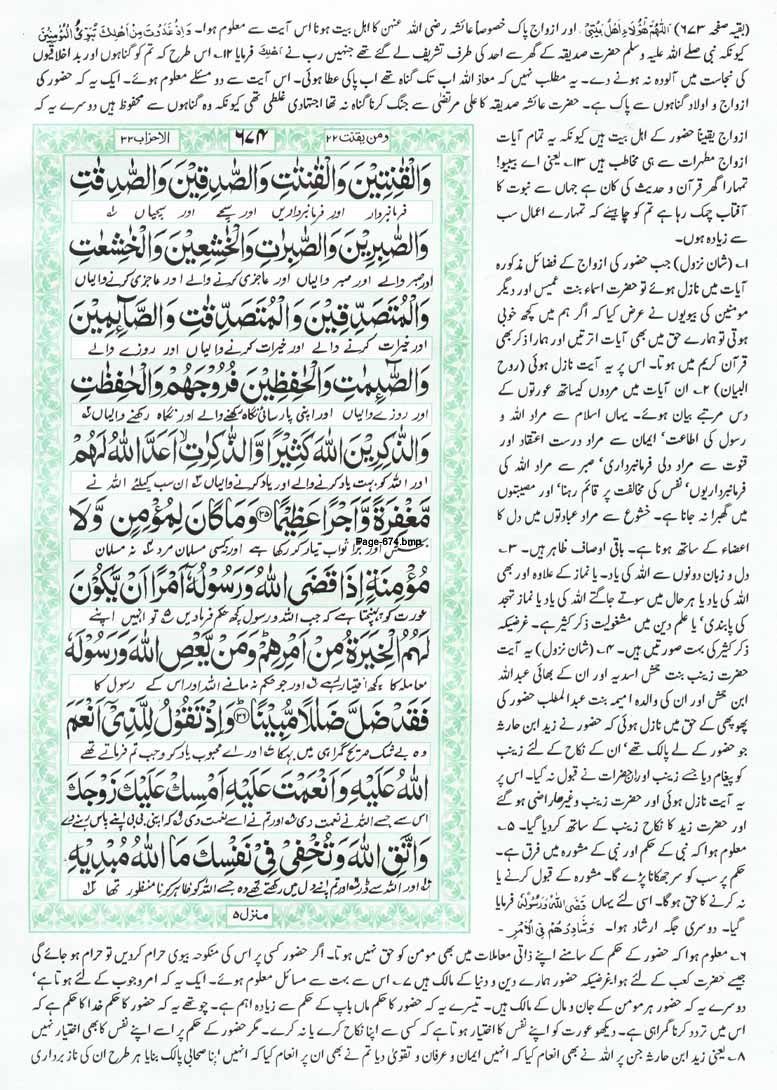 (بقیہ صفحہ ۶۷۳) اَللّٰهُمَّ هٰٓؤُلَآءِ اَهْلُ بَيْتِيْ اور ازواج پاک خصوصاً عائشہ رضی اللہ عنہن کا اہل بیت ہونا اس آیت سے معلوم ہوا۔ وَاِذْ غَدَوْتَ مِنْ اَهْلِكَ تُبَوِّئُ الْمُؤْمِنِيْنَ
کیونکہ نبی صلے اللہ علیہ وسلم حضرت صدیقہ کے گھر سے احد کی طرف تشریف لے گئے تھے جنہیں رب نے اَهْلِكَ فرمایا ۱۲۔ اس طرح کہ تم کو گناہوں اور بد اخلاقیوں
کی نجاست میں آلودہ نہ ہونے دے۔ یہ مطلب نہیں کہ معاذ اللہ اب تک گناہ تھے اب پاکی عطا ہوئی۔ اس آیت سے دو مسئلے معلوم ہوئے۔ ایک یہ کہ حضور کی
ازواج و اولاد گناہوں سے پاک ہے۔ حضرت عائشہ صدیقہ کا علی مرتضٰی سے جنگ کرنا گناہ نہ تھا اجتہادی غلطی تھی کیونکہ وہ گناہوں سے محفوظ ہیں دوسرے یہ کہ
ازواج یقیناً حضور کے اہل بیت ہیں کیونکہ یہ تمام آیات
ازواج مطہرات سے ہی مخاطب ہیں ۱۳۔ یعنی اے بیبیو!
تمہارا گھر قرآن و حدیث کی کان ہے جہاں سے نبوت کا
آفتاب چمک رہا ہے تم کو چاہیئے کہ تمہارے اعمال سب
سے زیادہ ہوں۔
۱۔ (شان نزول) جب حضور کی ازواج کے فضائل مذکورہ
آیات میں نازل ہوئے تو حضرت اسماء بنت عمیس اور دیگر
مومنین کی بیویوں نے عرض کیا کہ اگر ہم میں کچھ خوبی
ہوتی تو ہمارے حق میں بھی آیات اترتیں اور ہمارا ذکر بھی
قرآن کریم میں ہوتا۔ اس پر یہ آیت نازل ہوئی (روح
البیان) ۲۔ ان آیات میں مردوں کیساتھ عورتوں کے
دس مرتبے بیان ہوئے۔ یہاں اسلام سے مراد اللہ و
رسول کی اطاعت' ایمان سے مراد درست اعتقاد اور
قنوت سے مراد دلی فرمانبرداری' صبر سے مراد اللہ کی
فرمانبرداریوں' نفس کی مخالفت پر قائم رہنا' اور مصیبتوں
میں گھبرا نہ جانا ہے۔ خشوع سے مراد عبادتوں میں دل کا
اعضاء کے ساتھ ہونا ہے۔ باقی اوصاف ظاہر ہیں۔ ۳۔
دل و زبان دونوں سے اللہ کی یاد۔ یا نماز کے علاوہ اور بھی
اللہ کی یاد یا ہر حال میں سوتے جاگتے اللہ کی یاد یا نماز تہجد
کی پابندی' یا علم دین میں مشغولیت ذکر کثیر ہے۔ غرضیکہ
ذکر کثیر کی بہت صورتیں ہیں۔ ۴۔ (شان نزول) یہ آیت
حضرت زینب بنت جحش اسدیہ اور ان کے بھائی عبداللہ
ابن جحش اور ان کی والدہ امیمہ بنت عبدالمطلب حضور کی
پھوپھی کے حق میں نازل ہوئی کہ حضور نے زید ابن حارثہ
جو حضور کے لے پالک تھے' ان کے نکاح کے لئے زینب
کو پیغام دیا جسے زینب اور ان حضرات نے قبول نہ کیا۔ اس پر
یہ آیت نازل ہوئی اور حضرت زینب وغیرہا راضی ہو گئے
اور حضرت زید کا نکاح زینب کے ساتھ کردیا گیا۔ ۵۔
معلوم ہوا کہ نبی کے حکم اور نبی کے مشورہ میں فرق ہے۔
حکم پر سب کو سر جھکانا پڑے گا۔ مشورہ کے قبول کرنے یا
نہ کرنے کا حق ہوگا۔ اسی لئے یہاں قَضَى اللّٰهُ وَرَسُوْلُهٗٓ فرمایا
گیا۔ دوسری جگہ ارشاد ہوا۔ وَشَاوِرْهُمْ فِي الْاَمْرِ۔
ومن یقنت ۲۲
۶۷۴
الاحزاب ۳۳
وَالْقٰنِتِيْنَ وَالْقٰنِتٰتِ وَالصّٰدِقِيْنَ وَالصّٰدِقٰتِ
فرمانبردار اور فرمانبرداریں اور سچے اور سچیاں
وَالصّٰبِرِيْنَ وَالصّٰبِرٰتِ وَالْخٰشِعِيْنَ وَالْخٰشِعٰتِ
اور صبر والے اور صبر والیاں اور عاجزی کرنے والے اور عاجزی کرنے والیاں
وَالْمُتَصَدِّقِيْنَ وَالْمُتَصَدِّقٰتِ وَالصَّآىِٕمِيْنَ
اور خیرات کرنے والے اور خیرات کرنے والیاں اور روزے والے
وَالصّٰٓىِٕمٰتِ وَالْحٰفِظِيْنَ فُرُوْجَهُمْ وَالْحٰفِظٰتِ
اور روزے والیاں اور اپنی پارسائی نگاہ رکھنے والے اور نگاہ رکھنے والیاں
وَالذّٰكِرِيْنَ اللّٰهَ كَثِيْرًا وَّالذّٰكِرٰتِ اَعَدَّ اللّٰهُ لَهُمْ
اور اللہ کو بہت یاد کرنے والے اور یاد کرنے والیاں ان سب کیلئے اللہ نے
مَّغْفِرَةً وَّاَجْرًا عَظِيْمًا ۳۵ وَمَا كَانَ لِمُؤْمِنٍ وَّلَا
Page-674.bmp
اور بڑا ثواب تیار کر رکھا ہے اور کسی مسلمان مرد نہ مسلمان
مُؤْمِنَةٍ اِذَا قَضَى اللّٰهُ وَرَسُوْلُهٗٓ اَمْرًا اَنْ يَّكُوْنَ
عورت کو پہنچتا ہے کہ جب اللہ و رسول کچھ حکم فرمادیں تو انہیں اپنے
لَهُمُ الْخِيَرَةُ مِنْ اَمْرِهِمْ وَمَنْ يَّعْصِ اللّٰهَ وَرَسُوْلَهٗ
معاملہ کا کچھ اختیار رہے اور جو حکم نہ مانے اللہ اور اس کے رسول کا
فَقَدْ ضَلَّ ضَلٰلًا مُّبِيْنًا ۳۶ وَاِذْ تَقُوْلُ لِلَّذِيْٓ اَنْعَمَ
وہ بے شک صریح گمراہی میں بہکا اور اے محبوب یاد کرو جب تم فرماتے تھے
اللّٰهُ عَلَيْهِ وَاَنْعَمْتَ عَلَيْهِ اَمْسِكْ عَلَيْكَ زَوْجَكَ
اس سے جسے اللہ نے نعمت دی اور تم نے اسے نعمت دی کہ اپنی بی بی اپنے پاس رہنے دے
وَاتَّقِ اللّٰهَ وَتُخْفِيْ فِيْ نَفْسِكَ مَا اللّٰهُ مُبْدِيْهِ
اور اللہ سے ڈر اور تم اپنے دل میں رکھتے تھے وہ جسے اللہ کو ظاہر کرنا منظور تھا
منزل ۵
۶۔ معلوم ہوا کہ حضور کے حکم کے سامنے اپنے ذاتی معاملات میں بھی مومن کو حق نہیں ہوتا۔ اگر حضور کسی پر اس کی منکوحہ بیوی حرام کردیں تو حرام ہو جائے گی
جیسے حضرت کعب کے لئے ہوا غرضیکہ حضور ہمارے دین و دنیا کے مالک ہیں ۷۔ اس سے بہت سے مسائل معلوم ہوئے۔ ایک یہ کہ امر وجوب کے لئے ہوتا ہے'
دوسرے یہ کہ حضور ہر مومن کے جان و مال کے مالک ہیں۔ تیسرے یہ کہ حضور کا حکم ماں باپ کے حکم سے زیادہ اہم ہے۔ چوتھے یہ کہ حضور کا حکم خدا کا حکم ہے کہ
اس میں تردد کرنا گمراہی ہے۔ دیکھو عورت کو اپنے نفس کا اختیار ہوتا ہے کہ کسی سے اپنا نکاح کرے یا نہ کرے۔ مگر حضور کے حکم پر اسے اپنے نفس کا بھی اختیار نہیں
۸۔ یعنی زید ابن حارثہ جن پر اللہ نے بھی انعام کیا کہ انہیں ایمان و عرفان و تقویٰ دیا تم نے بھی ان پر انعام کیا کہ انہیں اپنا صحابی پالک بنایا ہر طرح ان کی ناز برداری